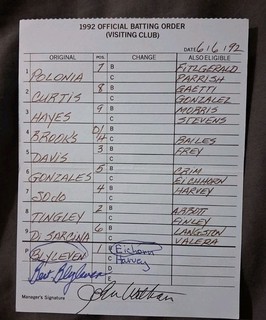 1992 OFFICIAL BATTING ORDER
(VISITING CLUB)
DATE 6/6/92
ORIGINAL POS. CHANGE ALSO ELIGIBLE
1 POLONIA 7 B C FITZGERALD PARRISH
2 CURTIS 8 B C GAETTI GONZALEZ
3 HAYES 9 B C MORRIS STEVENS
4 BROOKS B C BAILES
5 DAVIS 3 B C FREY
6 GONZALES 5 B C CRIM EICHHORN
7 SOJO 4 B C HARVEY
8 TINGLEY 2 B C ABBOTT FINLEY
9 DISARCINA 6 B C LANGSTON VALERA
P BLYLEVEN 1 B Eichorn
C Harvey
D
E
Bert Blyleven
Manager's Signature John Wathan